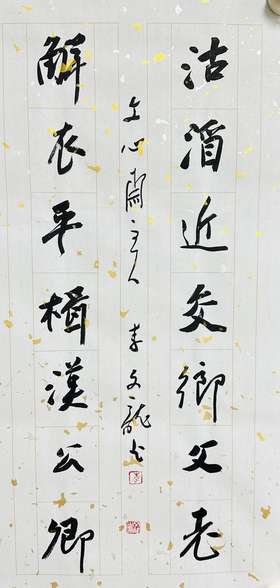 沽酒近交鄉父老
解衣平揖漢公卿
心 主人 李文龍书